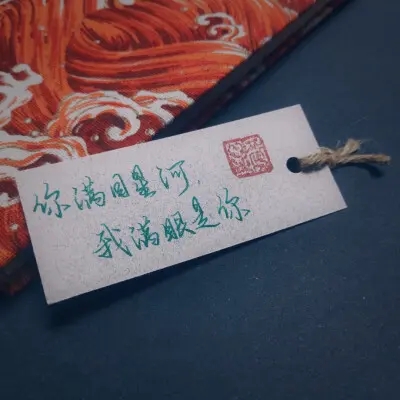 你满目星河,
我满眼是你